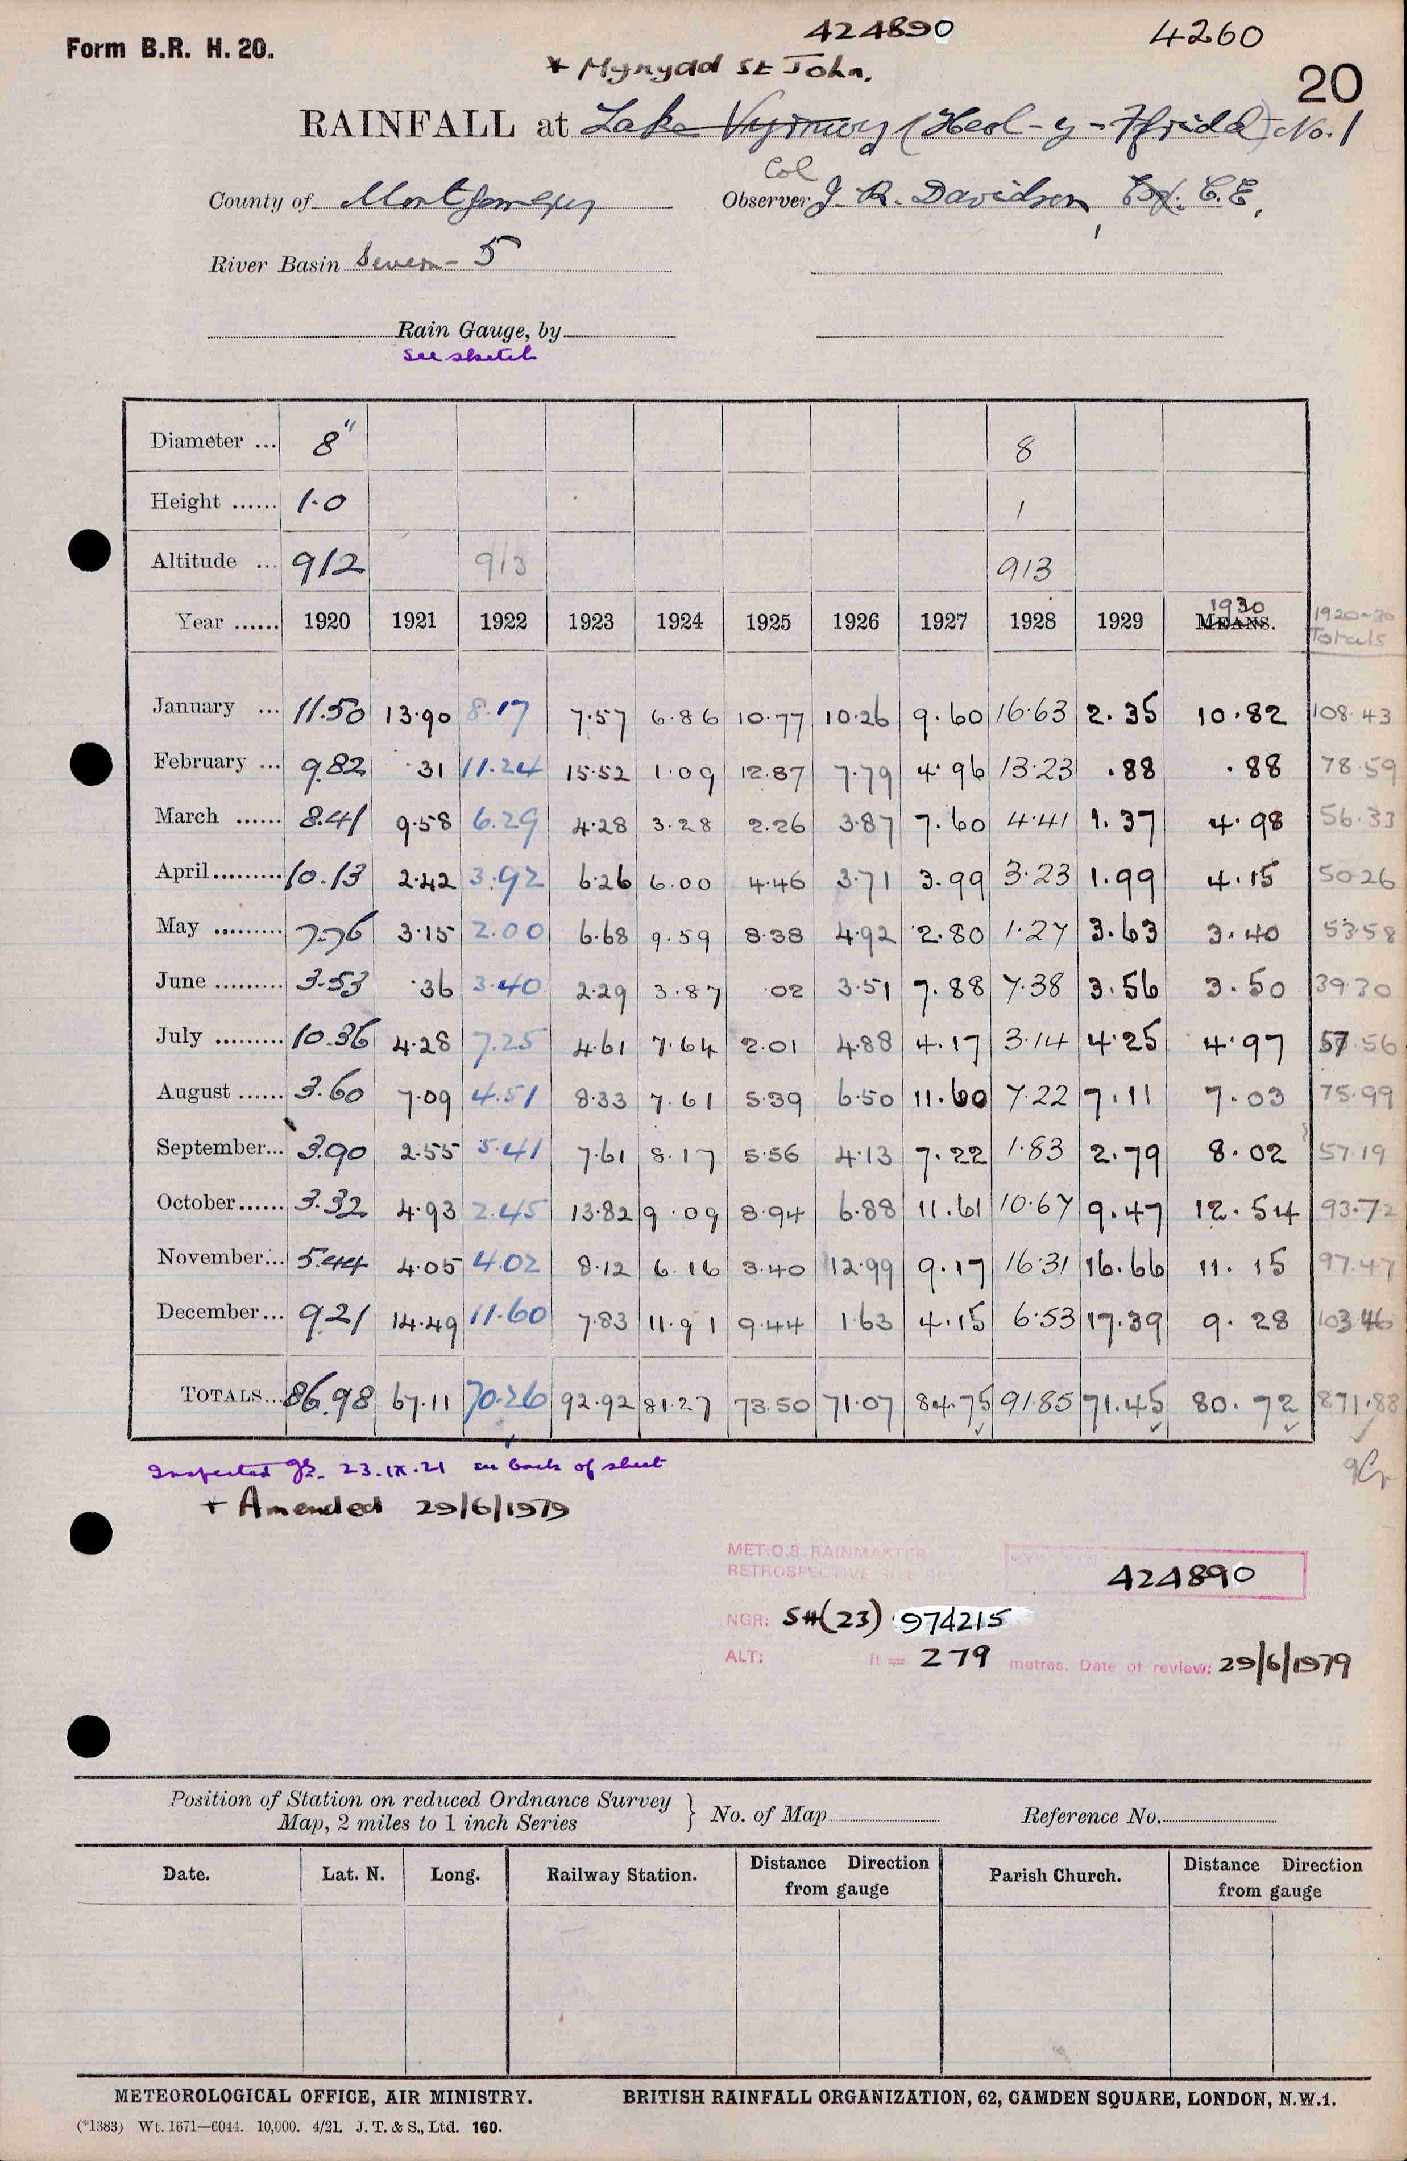 424890 4260
Form B.R. H. 20.
* Mynydd St John. 20
RAINFALL at Lake Vyrnwy (Heol-y-Ffridd) No. 1
Col
County of Montgomery Observer J. R. Davidson, Esq. C.E.,
River Basin Severn - 5
Rain Gauge, by
See sketch
Diameter ... 8" 8
Height ...... 1.0 1
Altitude ... 912 913 913
1930
Year ...... 1920 1921 1922 1923 1924 1925 1926 1927 1928 1929 MEANS. 1920-30 Totals
January ... 11.50 13.90 8.17 7.57 6.86 10.77 10.26 9.60 16.63 2.35 10.82 108.43
February ... 9.82 .31 11.24 15.52 1.09 12.87 7.79 4.96 13.23 .88 .88 78.59
March ...... 8.41 9.58 6.29 4.28 3.28 2.26 3.87 7.60 4.41 1.37 4.98 56.33
April ......... 10.13 2.42 3.92 6.26 6.00 4.46 3.71 3.99 3.23 1.99 4.15 50.26
May ......... 7.76 3.15 2.00 6.68 9.59 8.38 4.92 2.80 1.27 3.63 3.40 53.58
June ......... 3.53 .36 3.40 2.29 3.87 .02 3.51 7.88 7.38 3.56 3.50 39.30
July ......... 10.36 4.28 7.25 4.61 7.64 2.01 4.88 4.17 3.14 4.25 4.97 57.56
August ...... 3.60 7.09 4.51 8.33 7.61 5.39 6.50 11.60 7.22 7.11 7.03 75.99
September... 3.90 2.55 5.41 7.61 8.17 5.56 4.13 7.22 1.83 2.79 8.02 57.19
October...... 3.32 4.93 2.45 13.82 9.09 8.94 6.88 11.61 10.67 9.47 12.54 93.72
November... 5.44 4.05 4.02 8.12 6.16 3.40 12.99 9.17 16.31 16.66 11.15 97.47
December... 9.21 14.49 11.60 7.83 11.91 9.44 1.63 4.15 6.53 17.39 9.28 103.46
TOTALS... 86.98 67.11 70.26 92.92 81.27 73.50 71.07 84.75 91.85 71.45 80.72 871.88
Inspected 23.IX.21 see back of sheet
+ Amended 29/6/1979
MET.O.8 RAINMASTER
RETROSPECTIVE
424890
NGR: SH(23) 974215
ALT: ft = 279 metres. Date of review: 29/6/1979
Position of Station on reduced Ordnance Survey
Map, 2 miles to 1 inch Series } No. of Map Reference No.
Date. Lat. N. Long. Railway Station. Distance Direction from gauge Parish Church. Distance Direction from gauge
METEOROLOGICAL OFFICE, AIR MINISTRY. BRITISH RAINFALL ORGANIZATION, 62, CAMDEN SQUARE, LONDON, N.W.1.
(*1383) Wt. 1671—6044. 10,000. 4/21. J. T. & S., Ltd. 160.